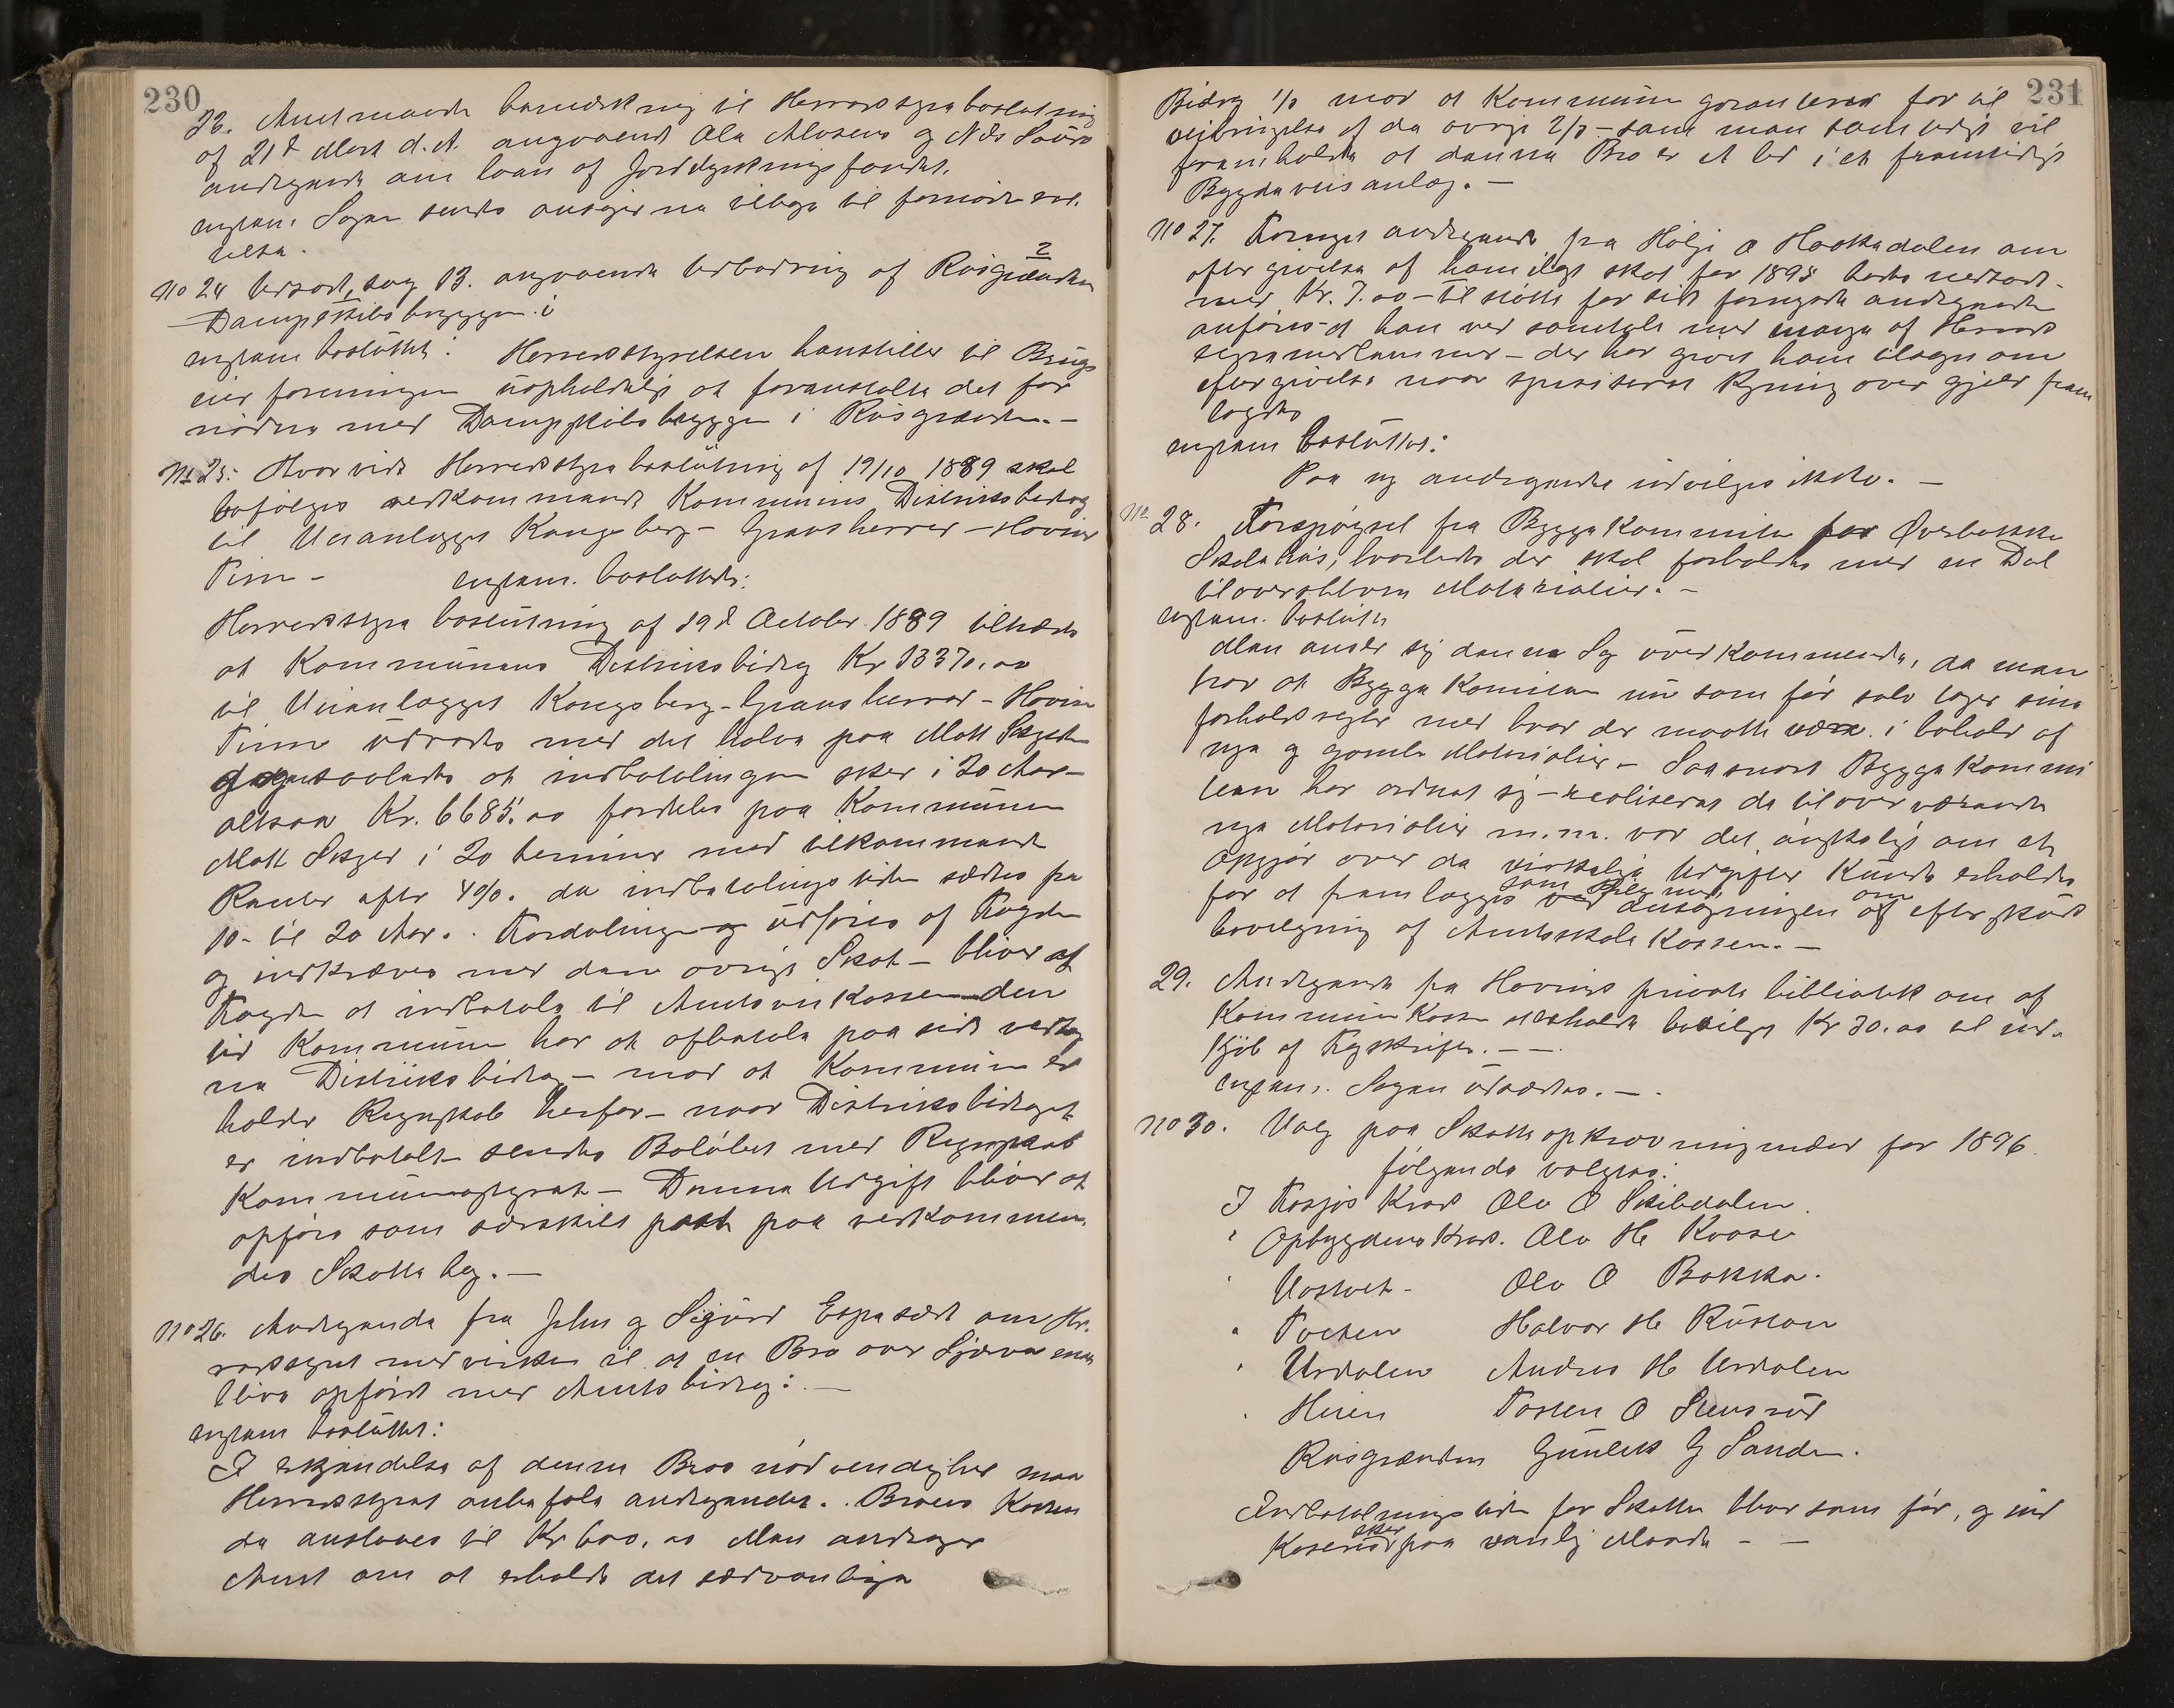 230
23. Amtmandens bemærkning til Herredsstyrebeslutning
af 21de Marts d.A. angaaende Ola Mosens og Nils
andragende om laan af Jorddyrkningsfondet.
enstem. Sagen sendes ansøgerne tilbage til fornøden
No 24 Udsat sag 13. angaaende Udbedring af Rusgrænden
Dampskibsbryggen i
enstem besluttet: Herredsstyrelsen henstiller til Brugs
eierforeningen uopholdelig at foranstalte det for
nødne med Dampskibsbryggen i Rusgrænden. —
No 25: Hvorvidt Herredsstyrebeslutning af 19/10 1889 skal
befølges vedkommende Kommunens Distriksbidrag
til Veianlægget Kongsberg – Gransherred – Hovin
Tinn – enstem. besluttedes:
Herredsstyrebeslutning af 19de October 1889
at Kommunens Distriksbidrag Kr 13370.00
til Veianlægget Kongsberg – Gransherred – Hovin
Tinn udredes med det halve paa Matr Skylden
saaledes at indbetalingen sker i 20 Aar –
altsaa Kr. 6685.00 fordeles paa Kommunens
Matr Skyld i 20 terminer med tilkommende
Renter efter 4%. da indbetalingstiden sættes fra
10 – til 20 Aar. Fordelingen udføres af Fogden
og indkræves med den øvrige Skat – bliver af
Fogden at indbetale til Amtsveikassen den
tid Kommunen har at afbetale paa sidt vedtag
ne Distriksbidrag – mod at Kommunen er
holder Regnskab herfor – naar Distriksbidraget
er indbetalt sendes Beløbet med Regnskab
Kommunestyret – Denne Udgift bliver at
opføre som særskilt post paa vedkommen
des Skattebog. —
No 26. Andragende fra John og Sigurd Espeset om Her
redsstyrets medvirken til at en Bro over maa
blive opført med Amtsbidrag: —
enstem besluttet:
I erkjendelse af denne Bros nødvendighed maa
Herredsstyret anbefale andragendet. Broens Kosten
de ansloaes til Kr 600.00 Man andrager
Amtet om at erholde det sædvanlige
231
Bidrag 1/3 mod at Kommunen garanterer for til
veibringelse af de øvrige 2/3 – som man samtidig vil
fremholde at denne Bro er et led i et fremtidigt
Bygdeveisanlæg. —
No 27. Fornyet andragende fra Holje O Haakadalen om
eftergivelse af ham ilagt skat for 1894
med Kr. 7.00 – til støtte for sidt fornyede andragende
anføres at han ved samtale med mange af Herreds
styremedlemmer – der har givet ham tilsagn om
eftergivelse naar specificeret Regning over gjæld frem
lagdes
enstem besluttet:
Paa ny andragendet indvilges ikke. —
No 28. Forespørgsel fra Byggekommiteen for Øverbække
Skolehus, hvorledes der skal forholdes med en Del
tiloversblevne Materialier. —
enstem. besluttet
Man anser sig denne Sag uvedkommende, da man
tror at Byggekomiteen nu som før selv tager sine
forholdsregler med hvad der maatte være i behold af
nye og gamle Materialier – Saasnart Byggekommi
teen har ordnet sig – realiseret de tiloversværende
nye Materialier m.m. var det ønskeligt om et
Opgjør over de virkelige Udgifter kunde erholdes
for at fremlægges som Bilag med ansøgningen om efterskuds
bevilgning af Amtsskolekassen. —
29. Andragende fra Hovins private bibliothek om af
Kommunekassen erholde bevilget Kr 30.00 til ind-
kjøb af — —
enstem. Sagen udsættes. —
No 30. Valg paa Skatteopkrævningsmænd for 1896.
følgende valgtes:
I Fosjøs Kreds Ole O Skibdalen.
" Opbygdens Kreds. Ole H Kaase
" Ole O Bakka.
" Halvor H Rustan
" Urdalen Anders H Urdalen
" Heien Tosten O Stensrud
Rusgrænden Gunleik G Sanden.
Indbetalningstiden for Skatten blev som før, og ind
sker paa vanlig Maade – —